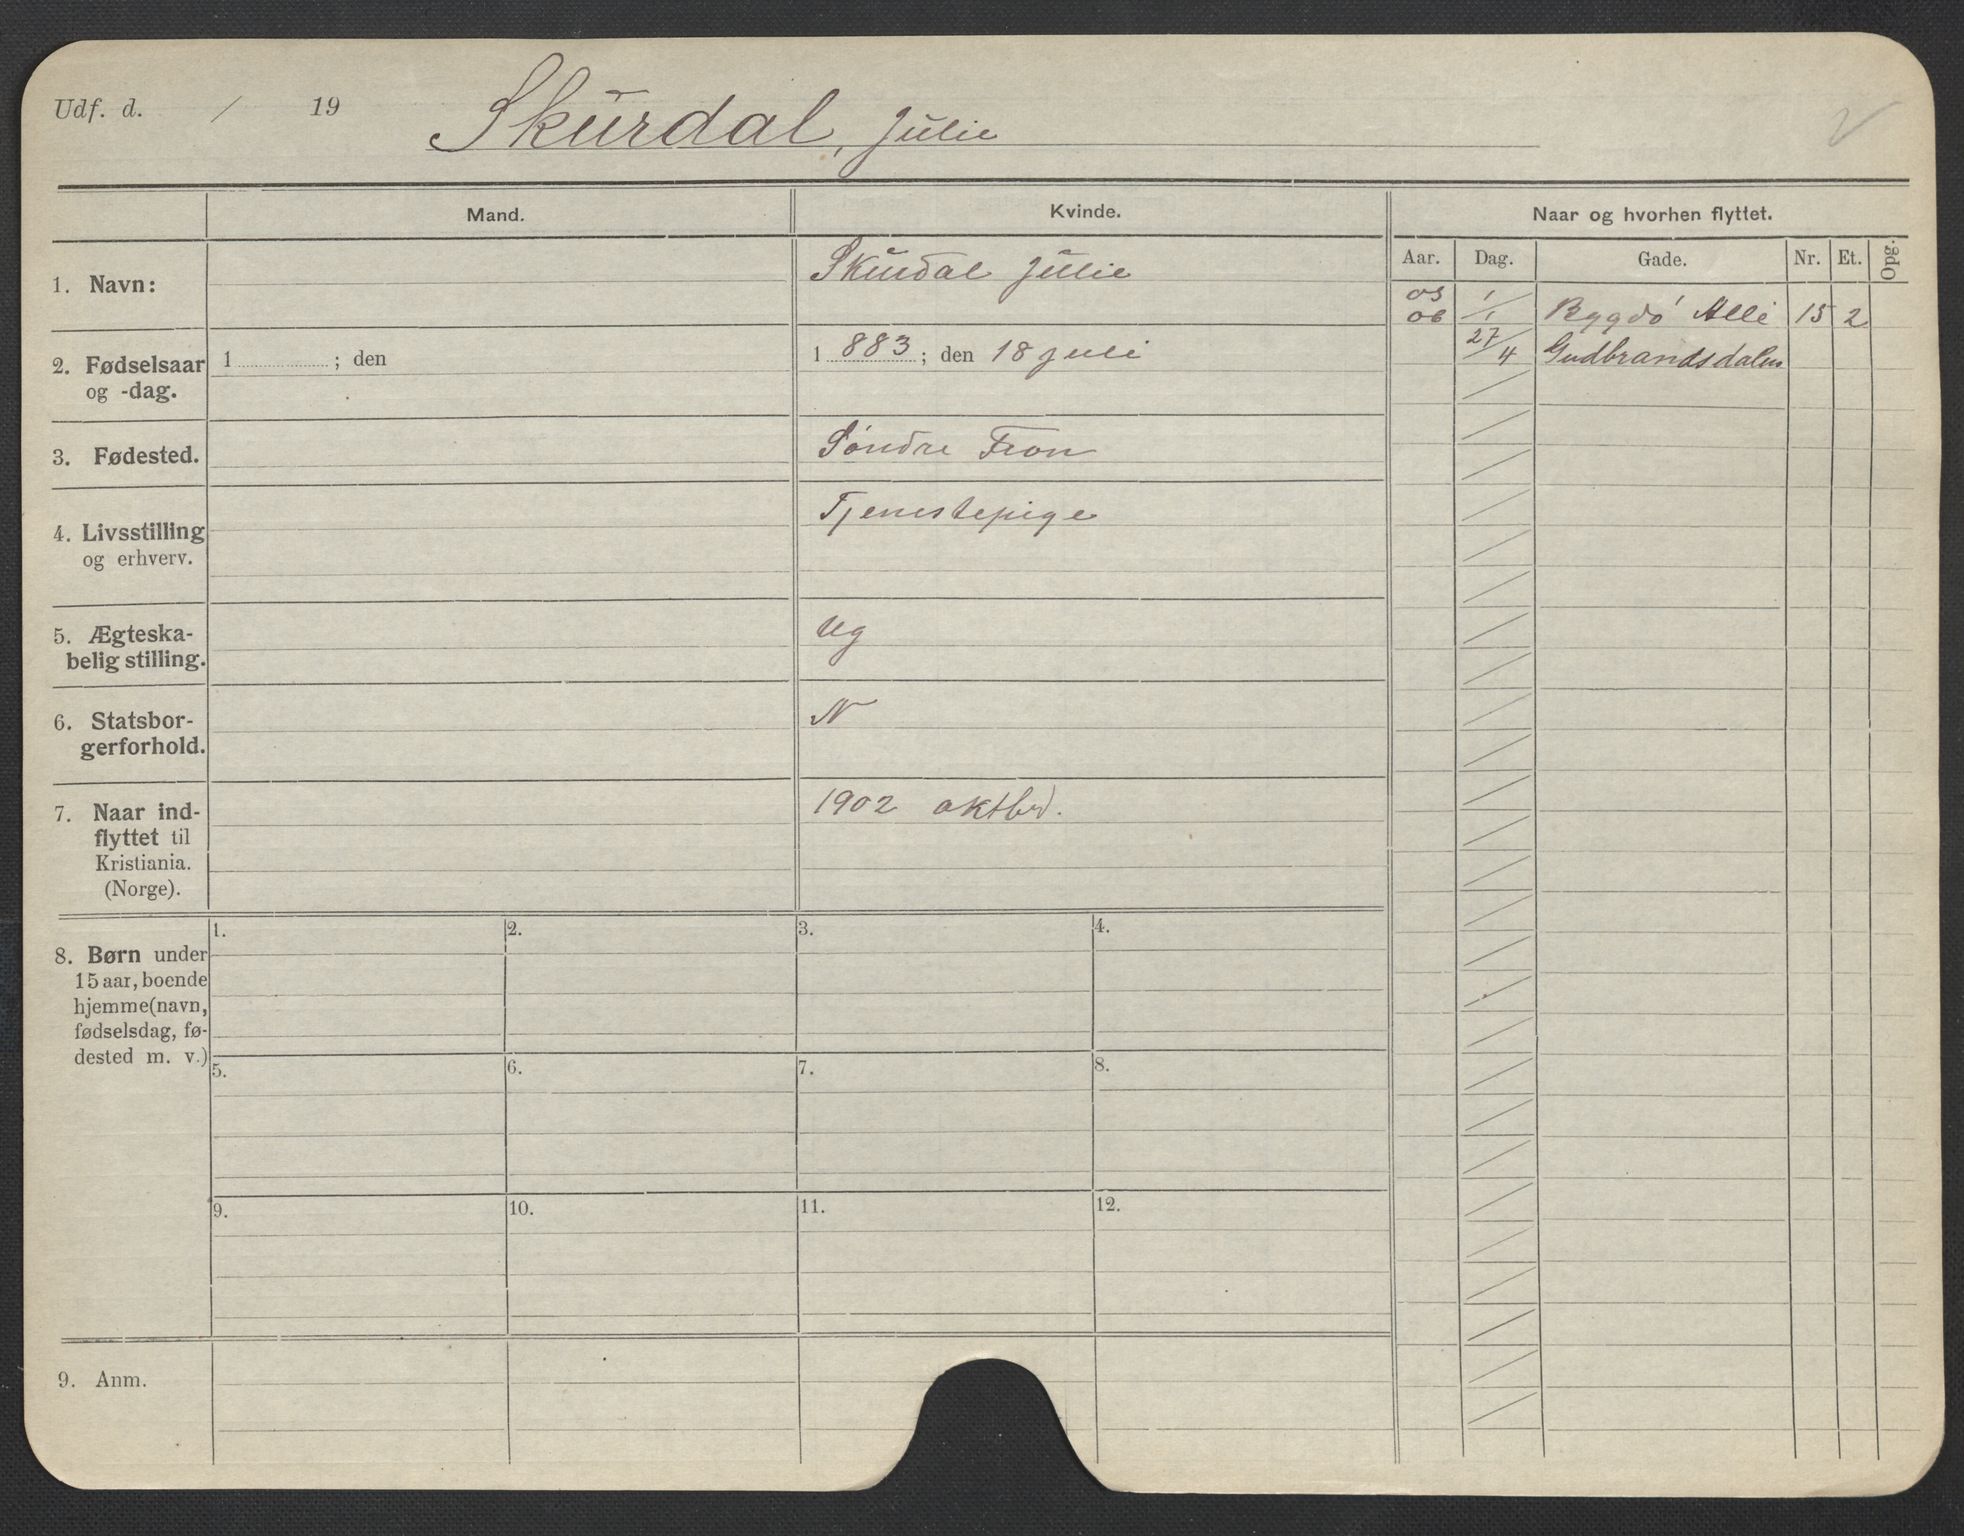 Udf. d. / 19 Skurdal, Julie
Mand. Kvinde. Naar og hvorhen flyttet.
Aar. Dag. Gade. Nr. Et. Opg.
1. Navn: Skurdal Julie
05 06 1/1 Bygdö Alle 15 2
27/4 Gudbrandsdalen
2. Fødselsaar 1 ; den 1883; den 18 juli
og -dag.
3. Fødested. Söndre Fron
4. Livsstilling Tjenestepige
og erhverv.
5. Ægteska-
belig stilling. Ug
6. Statsbor- N
gerforhold.
7. Naar ind- 1902 oktbr.
flyttet til
Kristiania.
(Norge).
8. Børn under
15 aar, boende
hjemme(navn,
fødselsdag, fø-
dested m. v.)
1. 2. 3. 4.
5. 6. 7. 8.
9. 10. 11. 12.
9. Anm.